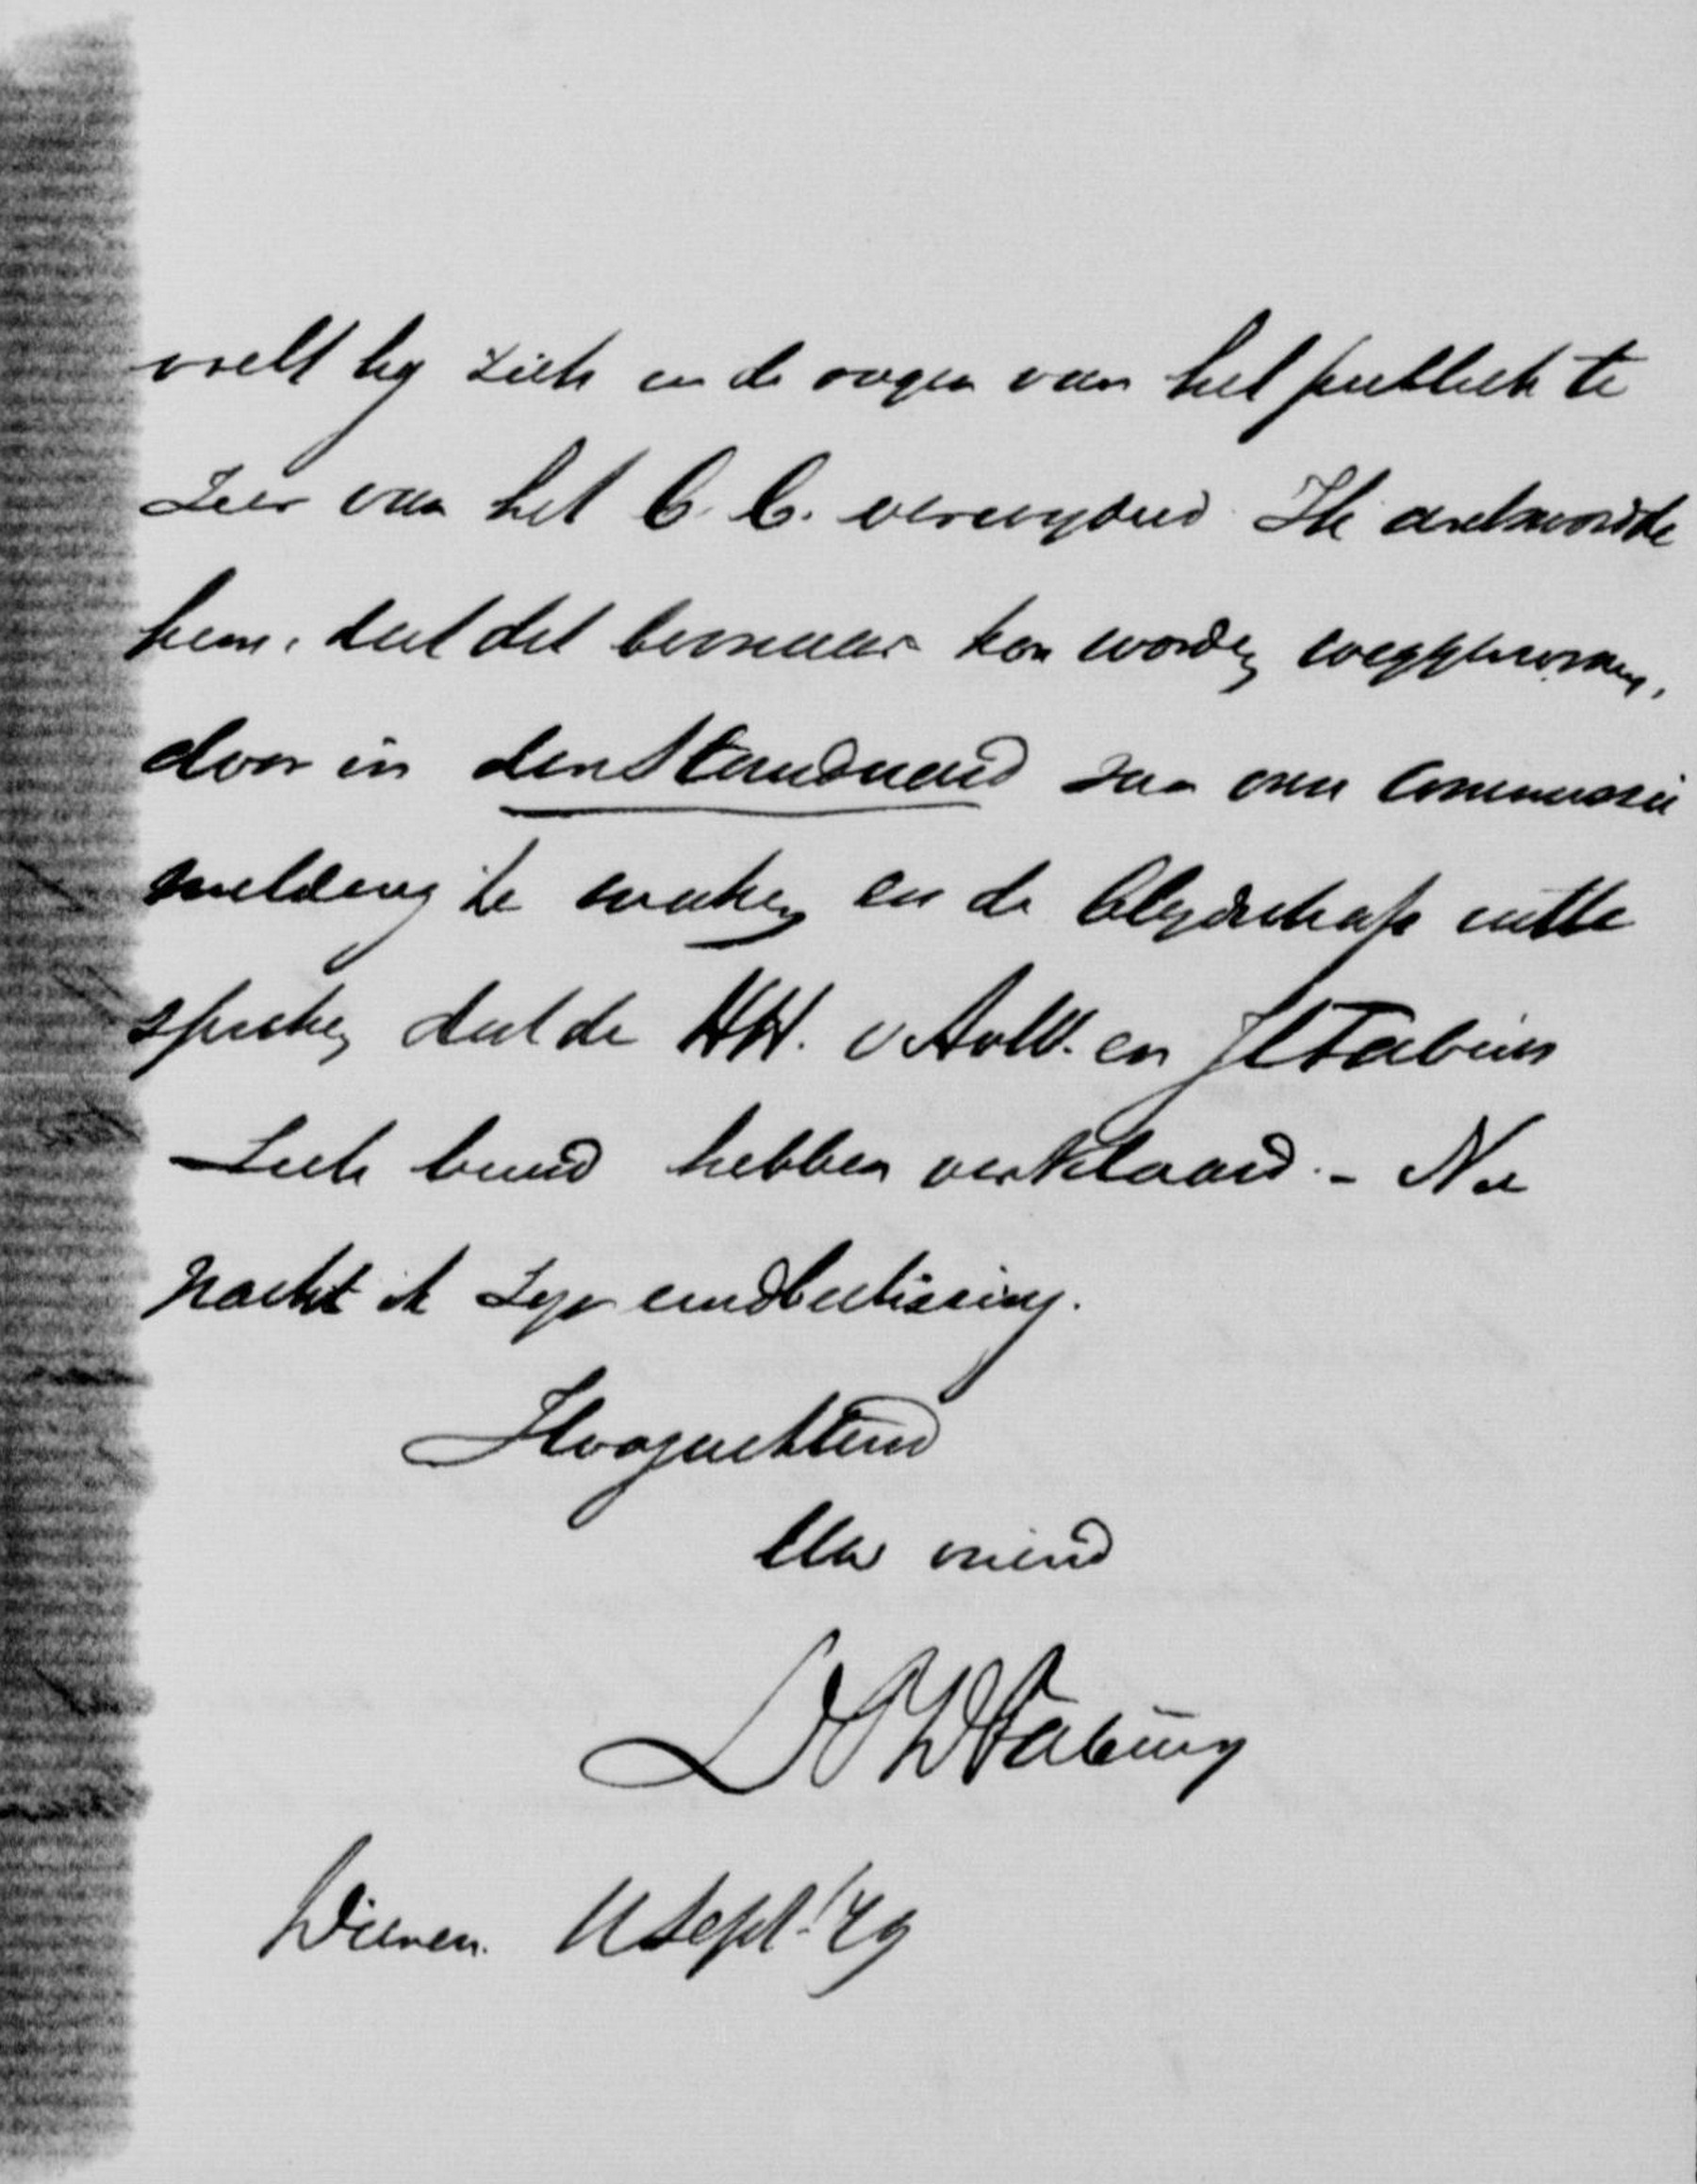 voelt hy zich in de oogen van het publiek te
zeer van het C. C. verwyderd. Ik antwoordde
hem, dat dit bezwaar kon worden weggenomen,
door in den Standaard van onze Commissie
melding te maken en de blydschap uit te
spreken dat de HH. v  en Fabius
zich bereid hebben verklaard. – Nu
wacht ik zyn eindbeslissing.
Hoogachtend
Uw vriend
Fabius
Dienen. 11 Sept. '79